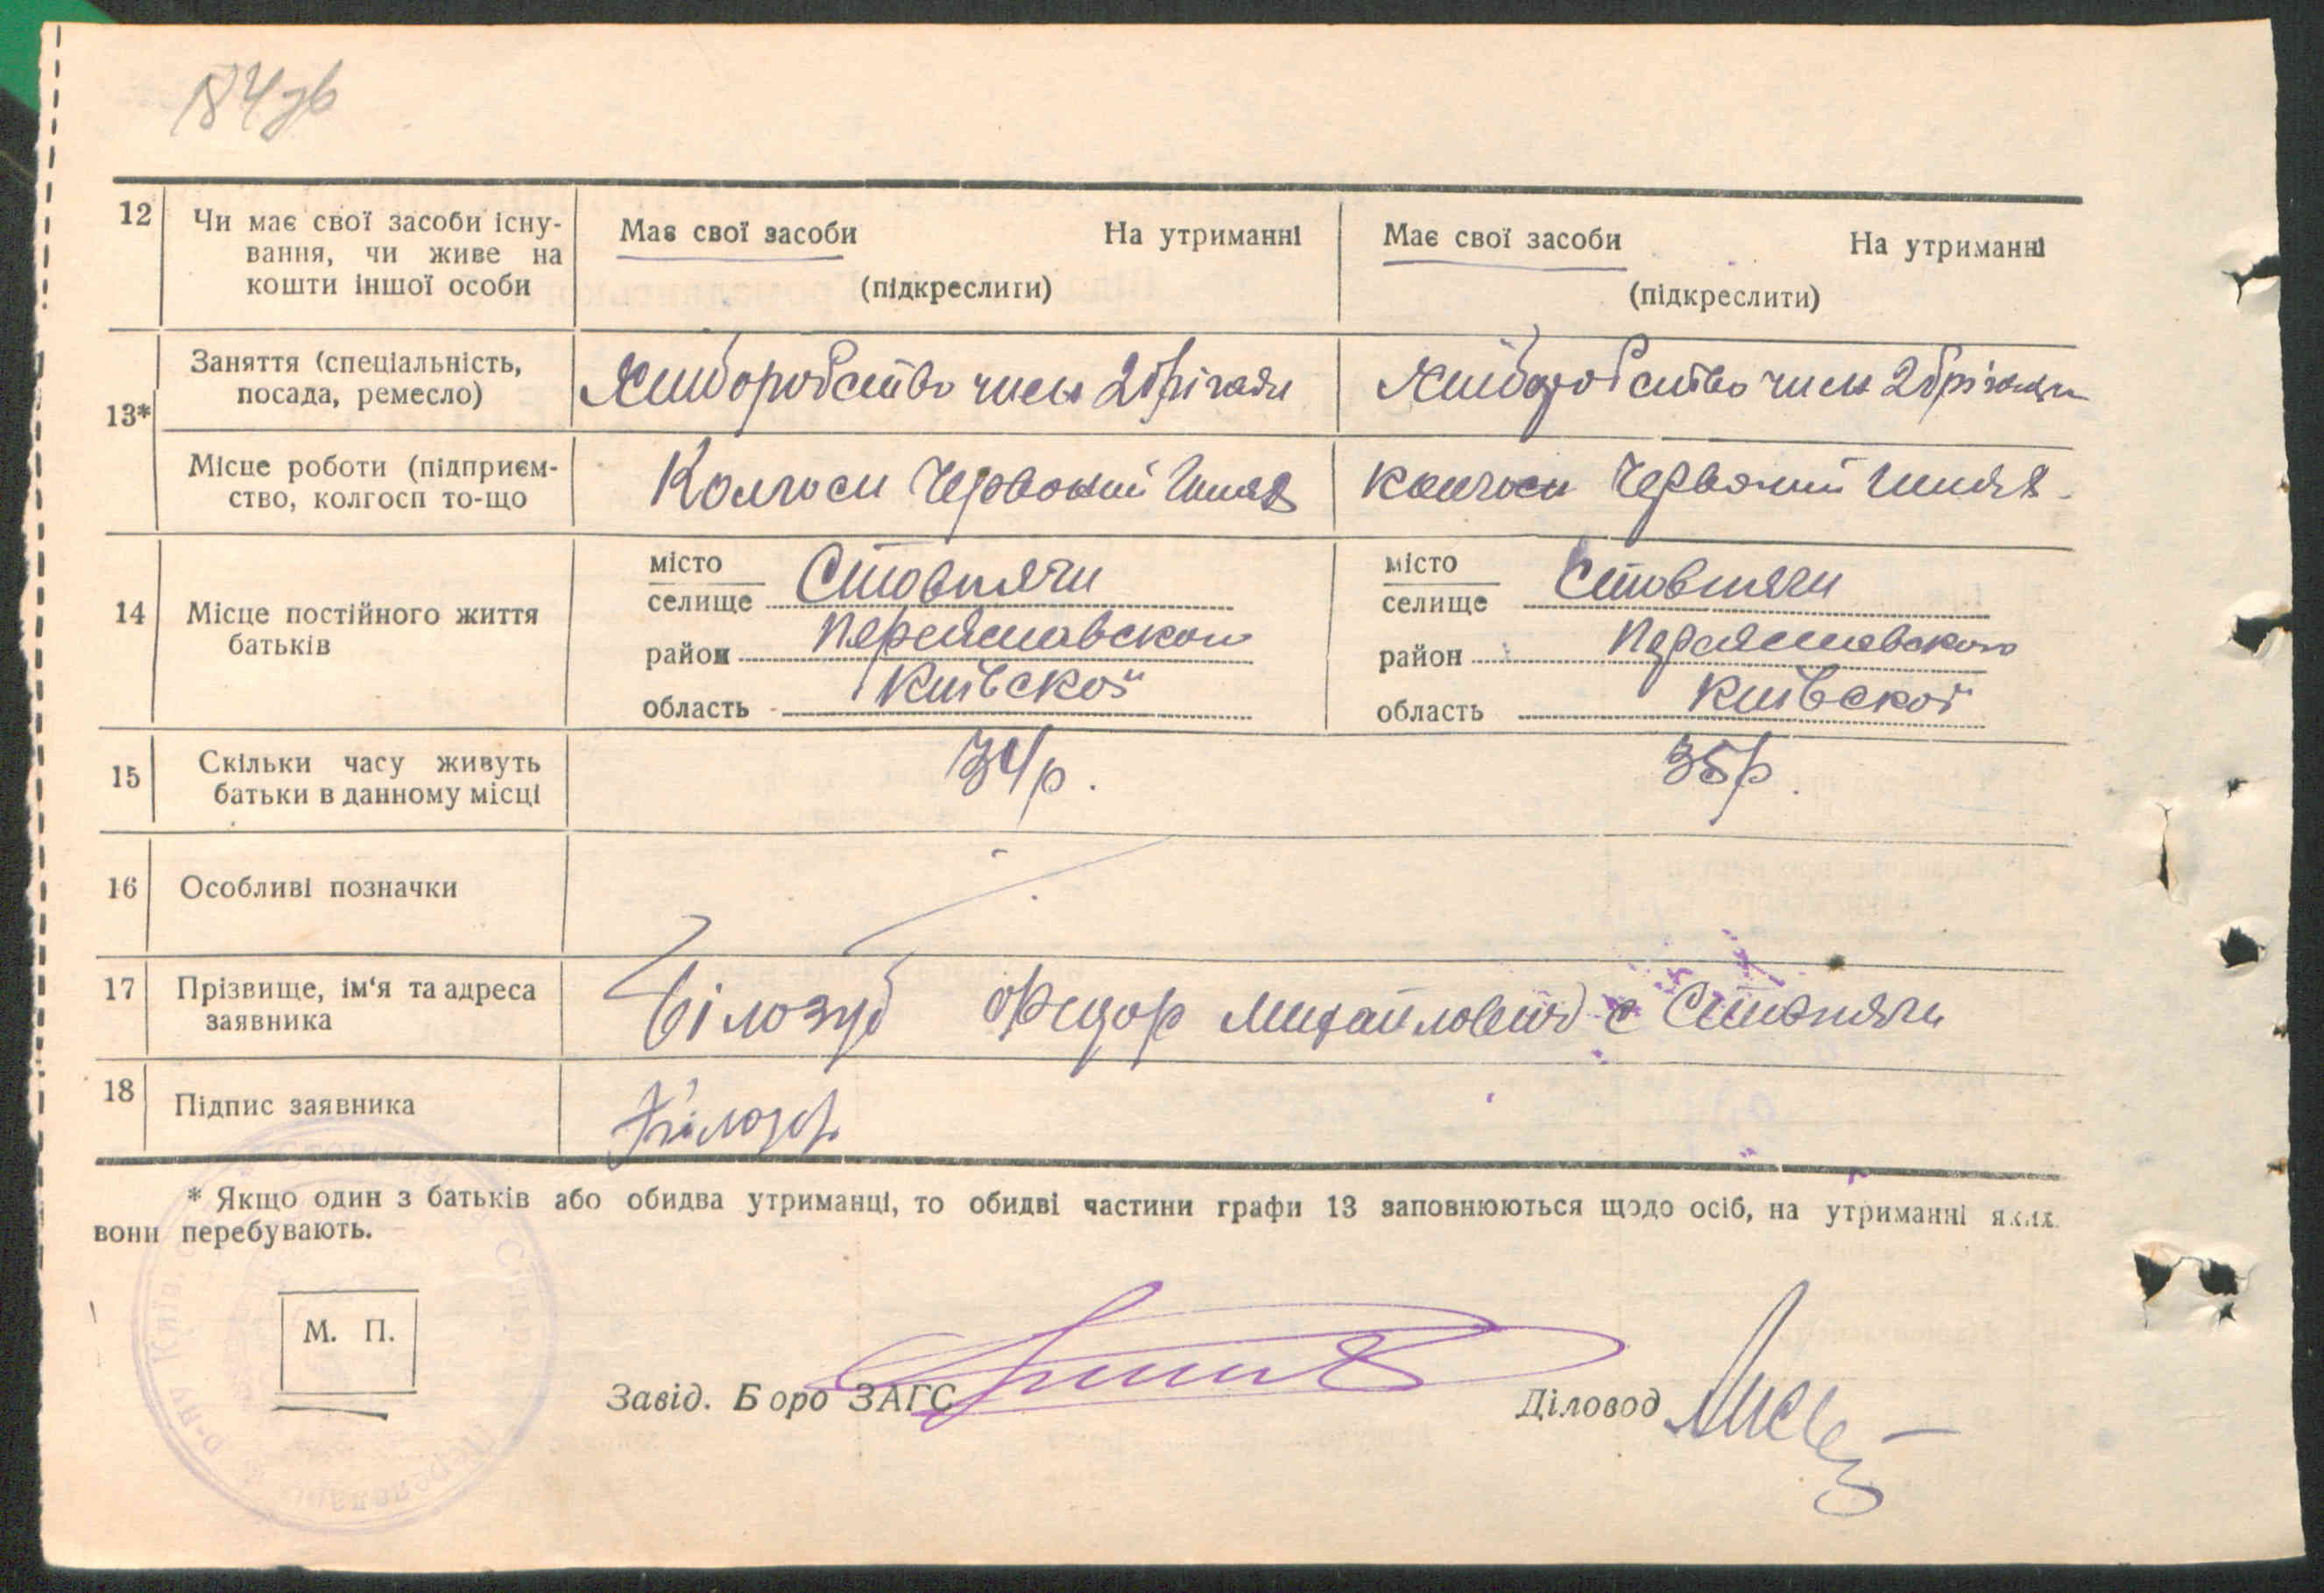 184зв
12 Чи має свої засоби існу- Має свої засоби На утриманні Має свої засоби На утриманні
вання, чи живе на
кошти іншої особи (підкреслити) (підкреслити)
Заняття (спеціальність,
посада, ремесло) Хліборобство член 2 брігади Хліборобство член 2 брігади
13*
Місце роботи (підприєм-
ство, колгосп то-що Колгосп Червоний Шлях Колгосп Червоний Шлях
14 Місце постійного життя
батьків
місто
селище Стовпяги
район Переяславского
область Київскої
місто
селище Стовпяги
район Переяславского
область Київскої
15 Скільки часу живуть
батьки в данному місці 34р. 35р.
16 Особливі позначки
17 Прізвище, ім'я та адреса
заявника Білозуб Федор Михайлович с Стовпяги
18 Підпис заявника Білозуб
* Якщо один з батьків або обидва утриманці, то обидві частини графи 13 заповнюються щодо осіб, на утриманні яких
вони перебувають.
М. П.
Завід. Бюро ЗАГС
Діловод